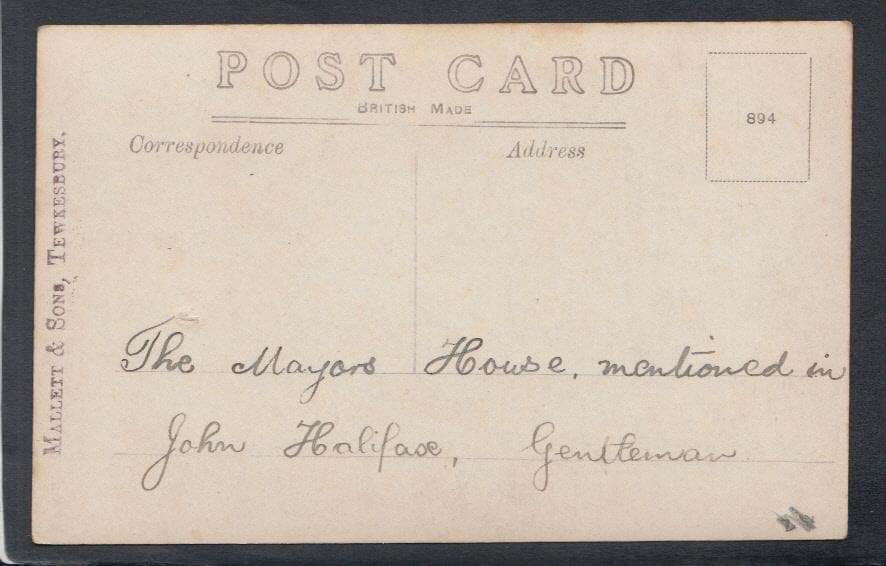 POST CARD
BRITISH MADE
894
Correspondence
Address
MALLETT & SONS, TEWKESBURY.
The Mayors House, mentioned in
John Halifax, Gentleman